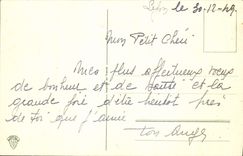 le 30-12-49
Mon Petit Chéri
Mes plus affectueux vœux
de bonheur et de santé et la
grande joie d'être bientôt près
de toi que j'aime
ton ange